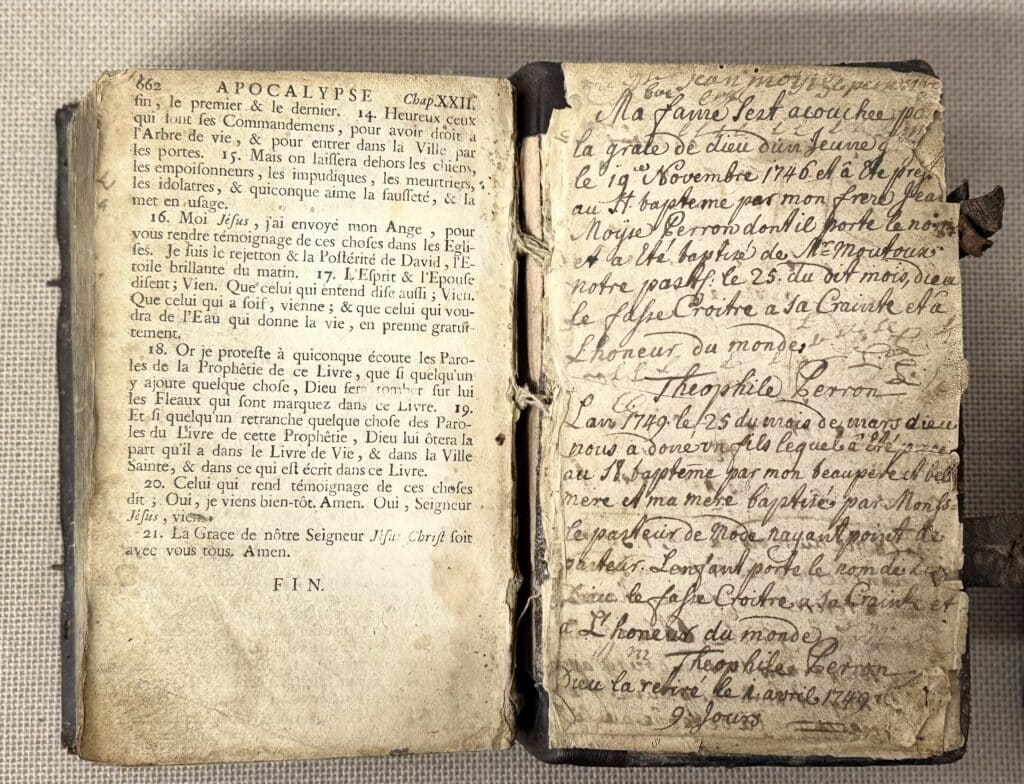 662 APOCALYPSE Chap. XXII.
fin, le premier & le dernier. 14. Heureux ceux
qui ſont ſes Commandemens, pour avoir droit à
l'Arbre de vie, & pour entrer dans la Ville par
les portes. 15. Mais on laiſſera dehors les chiens,
les empoiſonneurs, les impudiques, les meurtriers,
les idolatres, & quiconque aime la fauſſeté, & la
met en uſage.
16. Moi Jéſus, j'ai envoyé mon Ange, pour
vous rendre témoignage de ces choſes dans les Egli-
ſes. Je ſuis le rejetton & la Poſtérité de David, l'E-
toile brillante du matin. 17. L'Eſprit & l'Epouſe
diſent; Vien. Que celui qui entend diſe auſſi; Vien.
Que celui qui a ſoif, vienne; & que celui qui vou-
dra de l'Eau qui donne la vie, en prenne gratui-
tement.
18. Or je proteſte à quiconque écoute les Paro-
les de la Prophêtie de ce Livre, que ſi quelqu'un
y ajoute quelque choſe, Dieu fera tomber ſur lui
les Fleaux qui ſont marquez dans ce Livre. 19.
Et ſi quelqu'un retranche quelque choſe des Paro-
les du Livre de cette Prophêtie, Dieu lui ôtera la
part qu'il a dans le Livre de Vie, & dans la Ville
Sainte, & dans ce qui eſt écrit dans ce Livre.
20. Celui qui rend témoignage de ces choſes
dit; Oui, je viens bien-tôt. Amen. Oui, Seigneur
Jéſus, vien.
21. La Grace de nôtre Seigneur Jéſus Chriſt ſoit
avec vous tous. Amen.
FIN.
Jean moyse
Ma famе Sest acouchee
la grace de dieu dun Jeune
le 19 Novembre 1746 et à èté
au St. bapteme par mon frere Jean
Moyse Perron dont il porte le nom
et a èté baptizé de Mr. Moutoux
notre past. le 25. du dit mois, dieu
le fasse Croitre a sa Crainte et à
Lhoneur du monde.
Theophile Perron
Lan 1749. le 25 du mois de mars dieu
nous a doné un fils lequel à èté
au St. bapteme par mon beaupere et belle
mere et ma mere baptizé par Mons.
le pasteur de Rode nayant point de
pasteur. Lenfant porte le nom de
Dieu le fasse Croitre a sa Crainte et
à L'honeur du monde
Theophile Perron
Dieu la retiré le 2 avril 1749
9 Jours